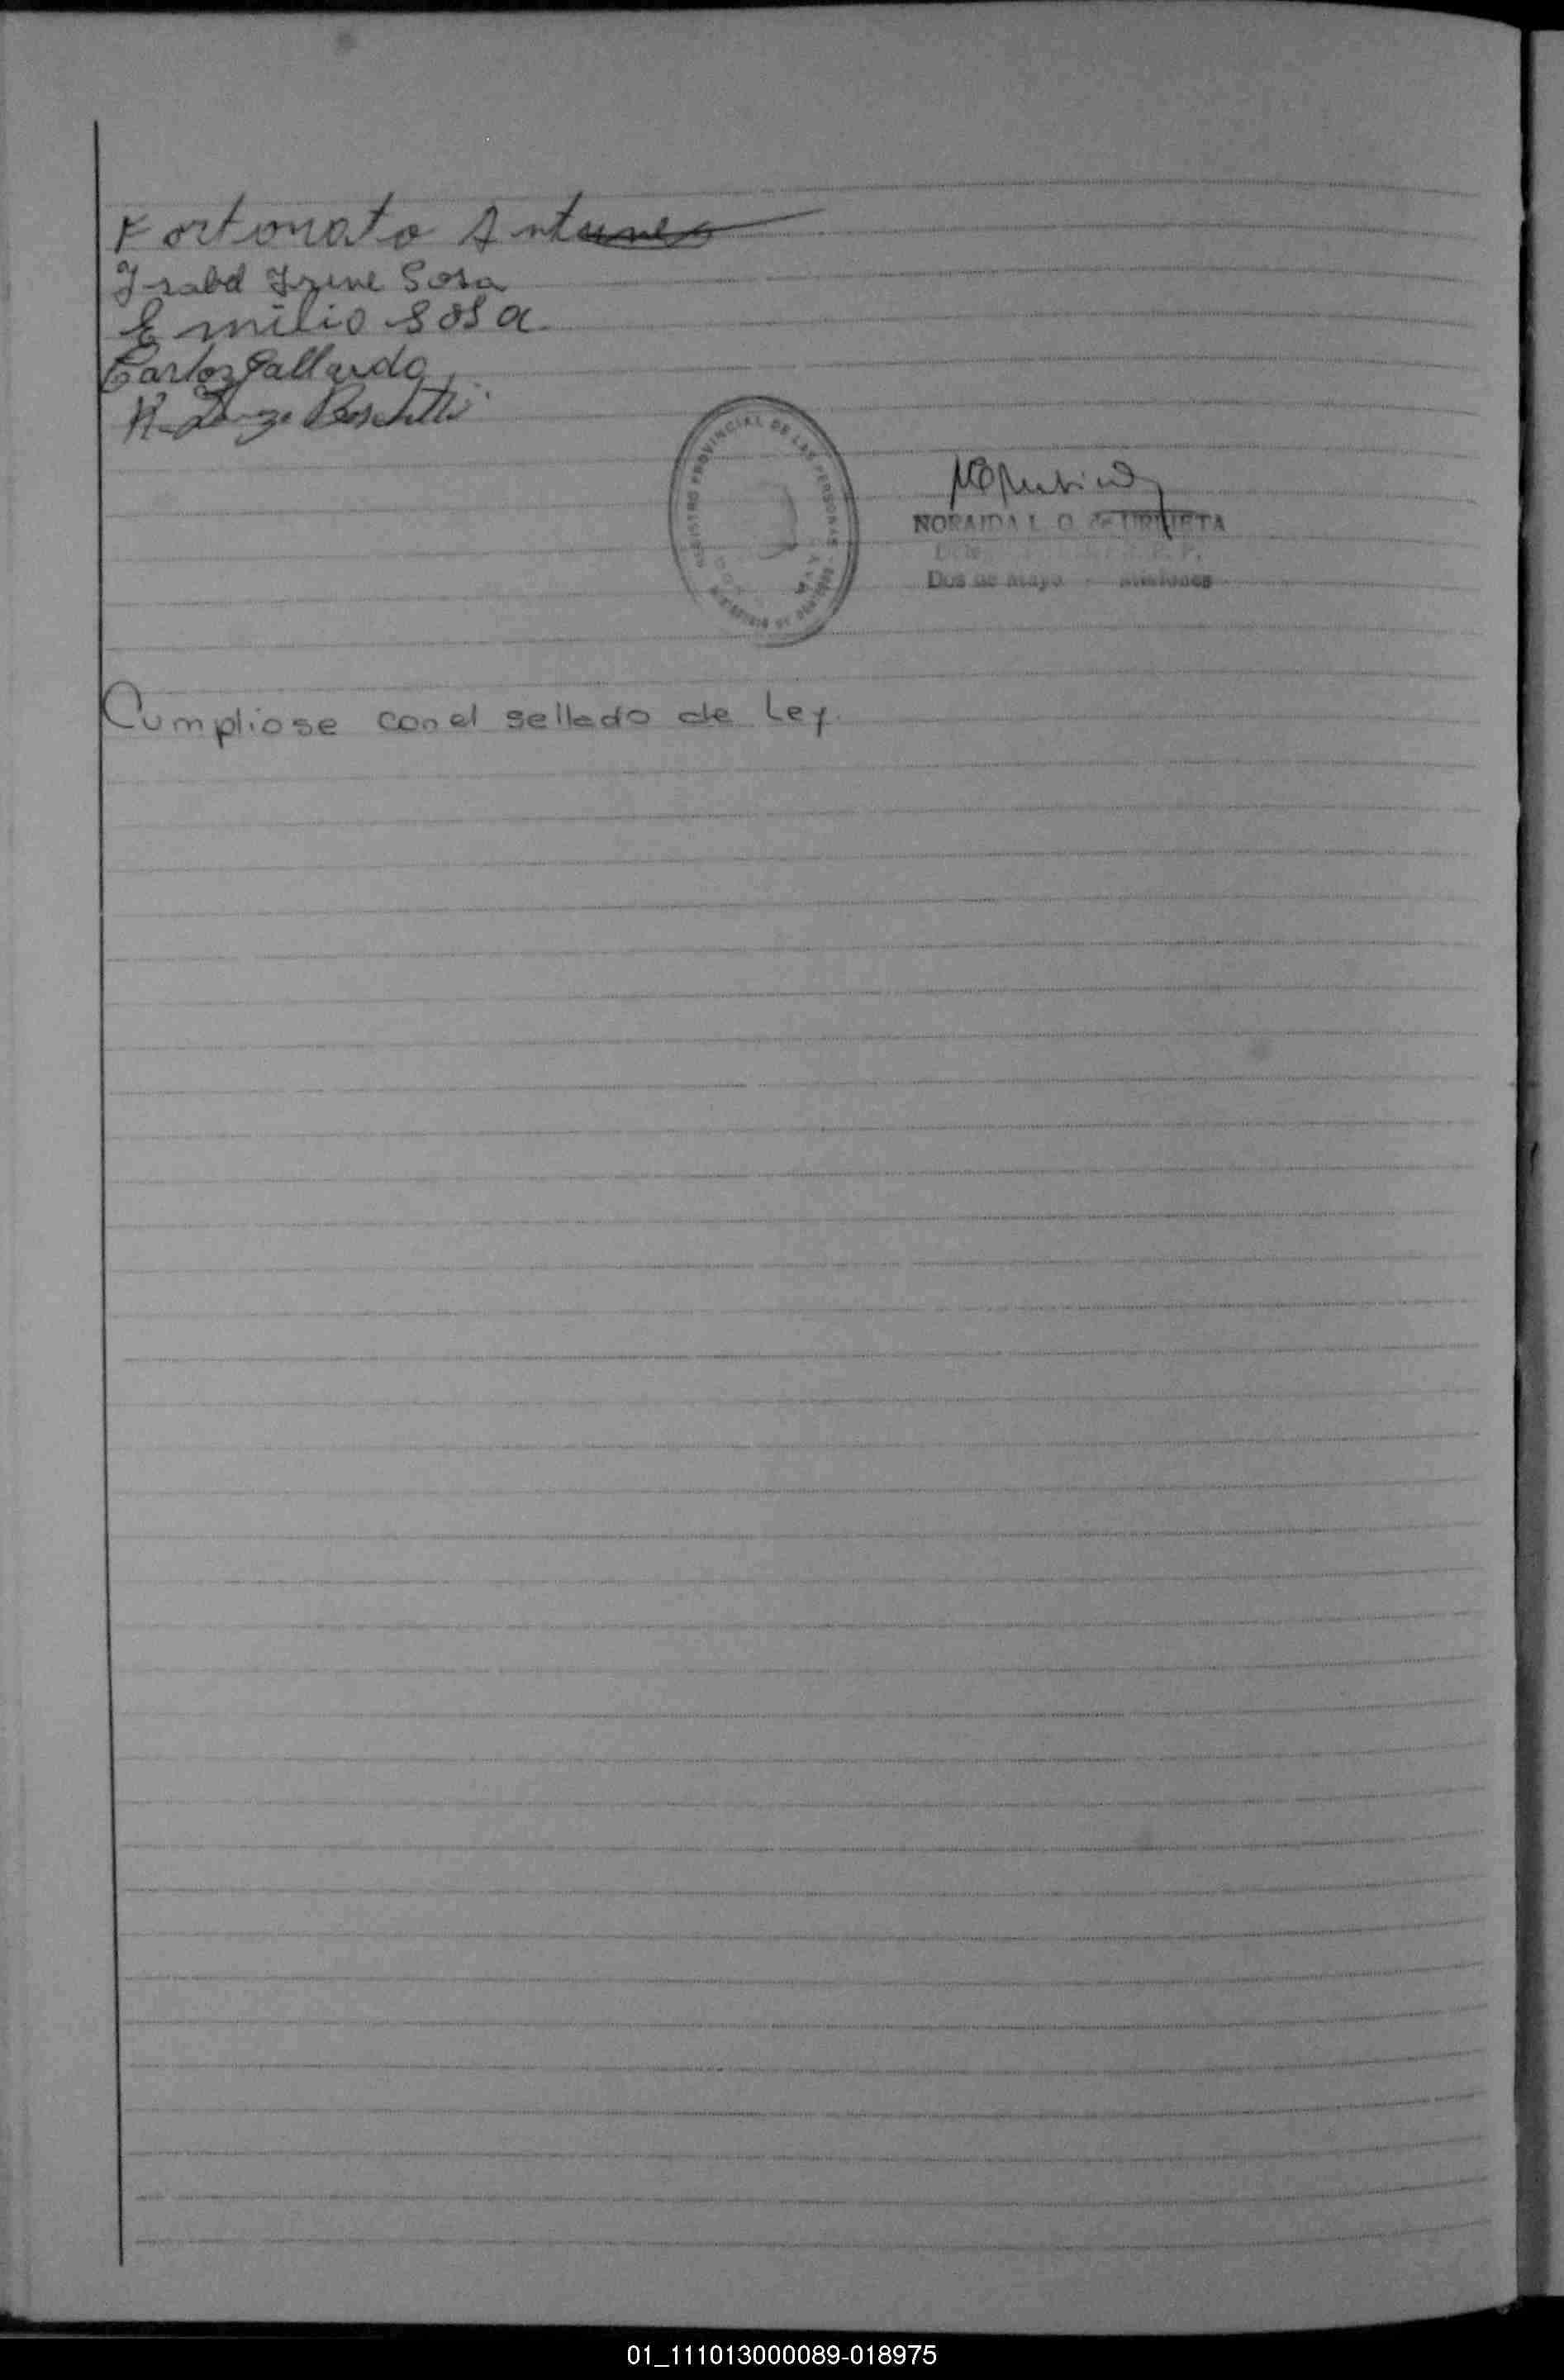 Fortonato Antunes
Isabel Irene Sosa
Emilio Sosa
Carlos Gallardo
REGISTRO PROVINCIAL DE LAS PERSONAS
NORAIDA L. O. de URRIETA
R. P. P.
Dos de Mayo - Misiones
Cumpliose con el sellado de Ley.
01_111013000089-018975